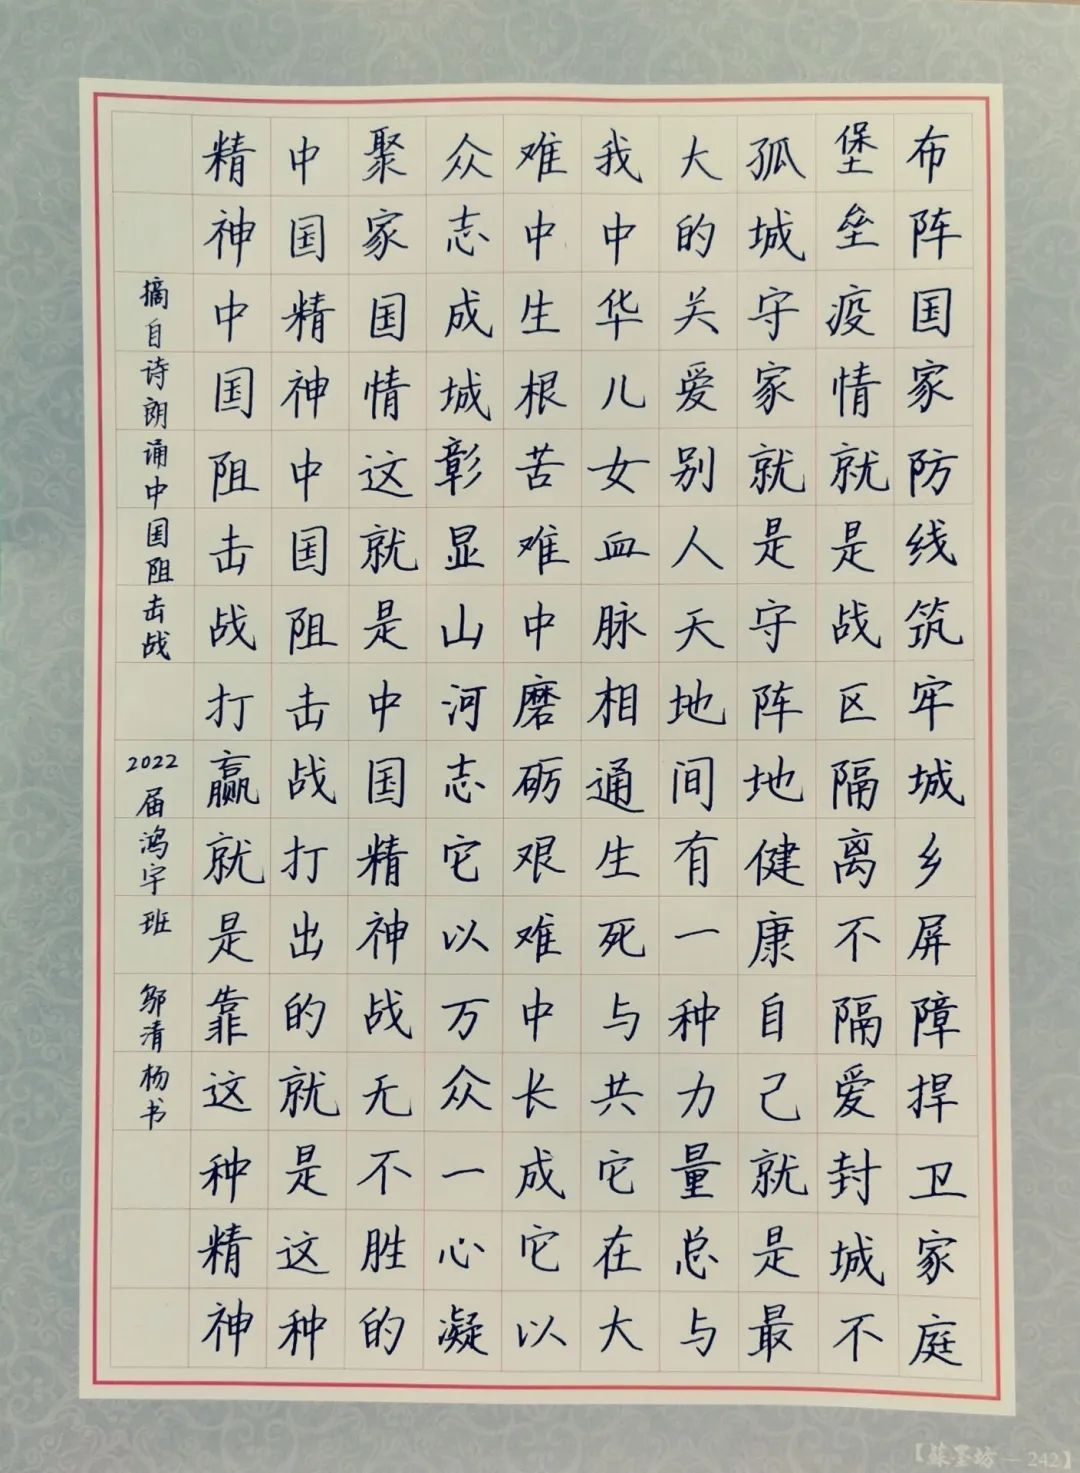 布阵国家防线筑牢城乡屏障捍卫家庭
堡垒疫情就是战区隔离不隔爱封城不
孤城守家就是守阵地健康自己就是最
大的关爱别人天地间有一种力量总与
我中华儿女血脉相通生死与共它在大
难中生根苦难中磨砺艰难中长成它以
众志成城彰显山河志它以万众一心凝
聚家国情这就是中国精神战无不胜的
中国精神中国阻击战打出的就是这种
精神中国阻击战打赢就是靠这种精神
摘自诗朗诵中国阻击战 2022届鸿宇班 邹清杨书
【苏墨坊—242】